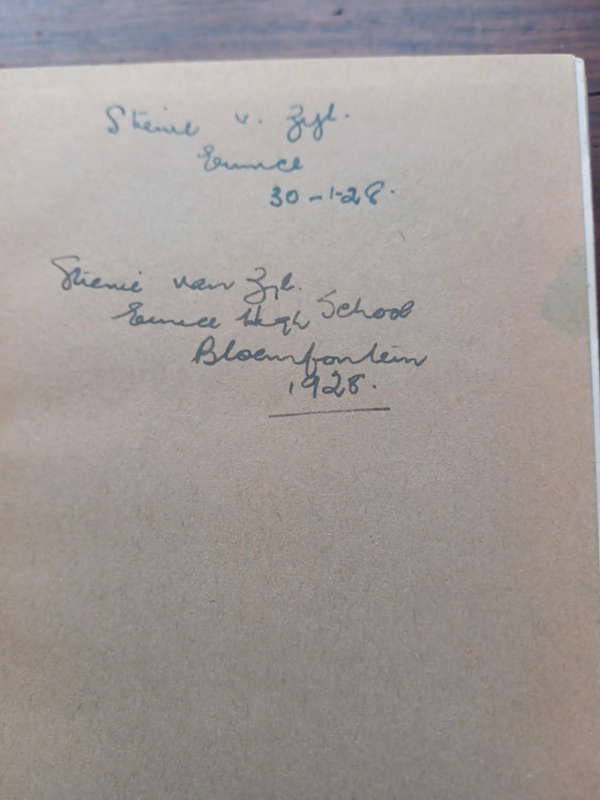 Stienie v. Zyl.
Eunice
30-1-28.
Stienie van Zyl.
Eunice High School
Bloemfontein
1928.